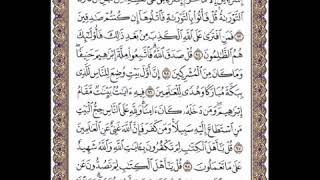 ٱلتَّوْرَىٰةُ قُلْ فَأْتُوا۟ بِٱلتَّوْرَىٰةِ فَٱتْلُوهَآ إِن كُنتُمْ صَٰدِقِينَ
٩٣ فَمَنِ ٱفْتَرَىٰ عَلَى ٱللَّهِ ٱلْكَذِبَ مِنۢ بَعْدِ ذَٰلِكَ فَأُو۟لَٰٓئِكَ
هُمُ ٱلظَّٰلِمُونَ ٩٤ قُلْ صَدَقَ ٱللَّهُ فَٱتَّبِعُوا۟ مِلَّةَ إِبْرَٰهِيمَ حَنِيفًا
وَمَا كَانَ مِنَ ٱلْمُشْرِكِينَ ٩٥ إِنَّ أَوَّلَ بَيْتٍ وُضِعَ لِلنَّاسِ لَلَّذِى
بِبَكَّةَ مُبَارَكًا وَهُدًى لِّلْعَٰلَمِينَ ٩٦ فِيهِ ءَايَٰتٌۢ بَيِّنَٰتٌ مَّقَامُ
إِبْرَٰهِيمَ وَمَن دَخَلَهُۥ كَانَ ءَامِنًا وَلِلَّهِ عَلَى ٱلنَّاسِ حِجُّ ٱلْبَيْتِ
مَنِ ٱسْتَطَاعَ إِلَيْهِ سَبِيلًا وَمَن كَفَرَ فَإِنَّ ٱللَّهَ غَنِىٌّ عَنِ ٱلْعَٰلَمِينَ
٩٧ قُلْ يَٰٓأَهْلَ ٱلْكِتَٰبِ لِمَ تَكْفُرُونَ بِـَٔايَٰتِ ٱللَّهِ وَٱللَّهُ شَهِيدٌ
عَلَىٰ مَا تَعْمَلُونَ ٩٨ قُلْ يَٰٓأَهْلَ ٱلْكِتَٰبِ لِمَ تَصُدُّونَ عَن